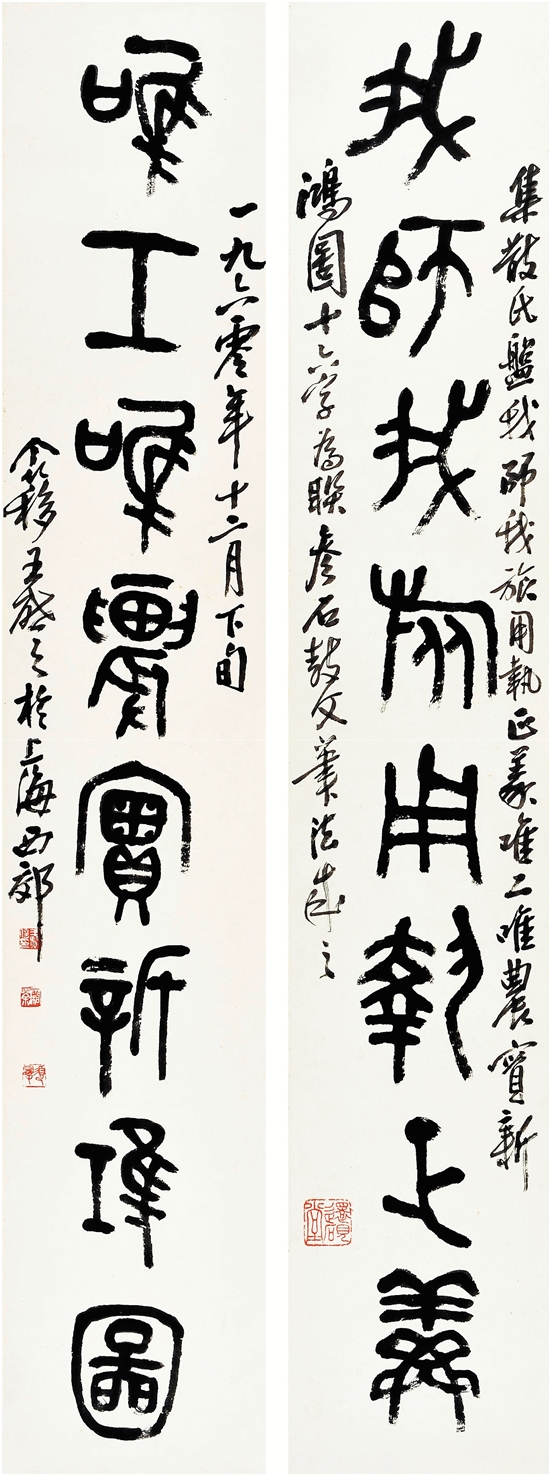 我師我旅用執正義
集散氏盤我師我旅用執正義唯工唯農實新
鴻圖十六字為聯參石鼓文筆法成之
唯工唯農實新鴻圖
一九六零年十二月下旬
个簃王啟之於上海西郊